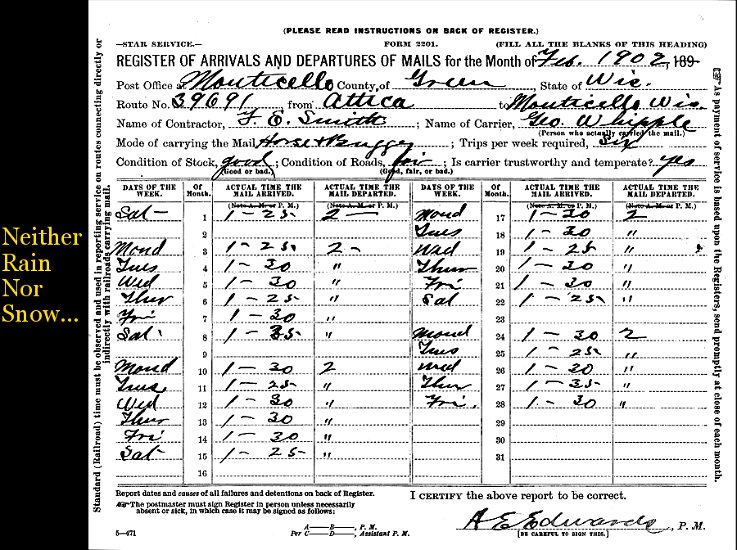 (PLEASE READ INSTRUCTIONS ON BACK OF REGISTER.)
—STAR SERVICE.— FORM 2201. (FILL ALL THE BLANKS OF THIS HEADING)
REGISTER OF ARRIVALS AND DEPARTURES OF MAILS for the Month of Feb. 1902, 189-
Post Office at Monticello County, of Green, State of Wis.
Route No. 39691 from Attica to Monticello Wis.
Name of Contractor, F. E. Smith; Name of Carrier, Geo. Whipple
(Person who actually carried the mail.)
Mode of carrying the Mail, Horse & Buggy; Trips per week required, Six
Condition of Stock, good; Condition of Roads, fair; Is carrier trustworthy and temperate? yes
(Good or bad.) (Good, fair, or bad.)
DAYS OF THE WEEK. Of Month. ACTUAL TIME THE MAIL ARRIVED. ACTUAL TIME THE MAIL DEPARTED. DAYS OF THE WEEK. Of Month. ACTUAL TIME THE MAIL ARRIVED. ACTUAL TIME THE MAIL DEPARTED.
(Note A. M. or P. M.) (Note A. M. or P. M.) (Note A. M. or P. M.) (Note A. M. or P. M.)
Sat — 1 1 - 25 2 — Mond 17 1 - 30 2
2 Tues 18 1 - 30 "
Mond 3 1 - 25 2 - Wed 19 1 - 25 "
Tues 4 1 - 30 " Thur 20 1 - 30 "
Wed 5 1 - 30 " Fri 21 1 - 30 "
Thur 6 1 - 25 " Sat 22 1 - 25 "
Fri 7 1 - 30 " 23
Sat 8 1 - 35 " Mond 24 1 - 30 2
9 Tues 25 1 - 25 "
Mond 10 1 - 30 2 Wed 26 1 - 20 "
Tues 11 1 - 25 " Thur 27 1 - 35 "
Wed 12 1 - 30 " Fri. 28 1 - 30 "
Thur 13 1 - 30 " 29
Fri 14 1 - 30 " 30
Sat 15 1 - 25 " 31
16
Report dates and causes of all failures and detentions on back of Register.
The postmaster must sign Register in person unless necessarily
absent or sick, in which case it may be signed as follows:
A—— B——, P. M.
Per C—— D——, Assistant P. M.
5—471
I CERTIFY the above report to be correct.
A E Edwards, P. M.
[BE CAREFUL TO SIGN THIS.]
Standard (Railroad) time must be observed and used in reporting service on routes connecting directly or
indirectly with railroads carrying mail.
As payment of service is based upon the Registers, send promptly at close of each month.
Neither
Rain
Nor
Snow...